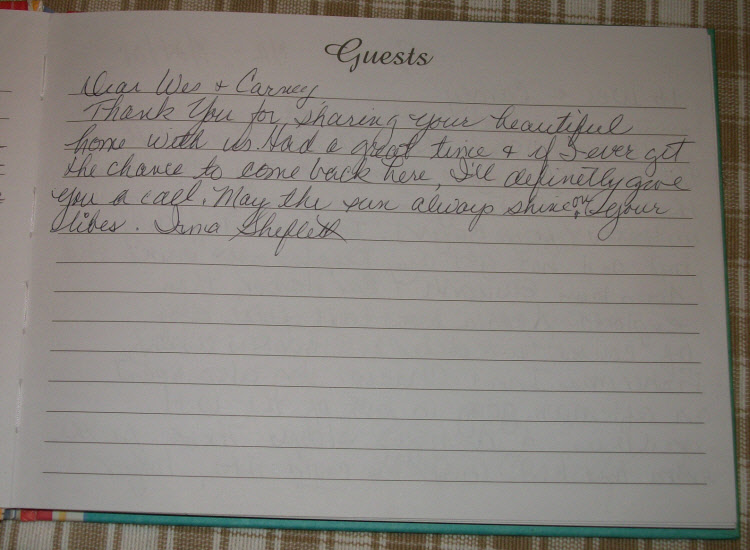 Guests
Dear Wes & Carney
Thank You for sharing your beautiful
home with us. Had a great time & if I ever get
the chance to come back here, I'll definetly give
you a call. May the sun always shine on your
lives. Irma Sheflett